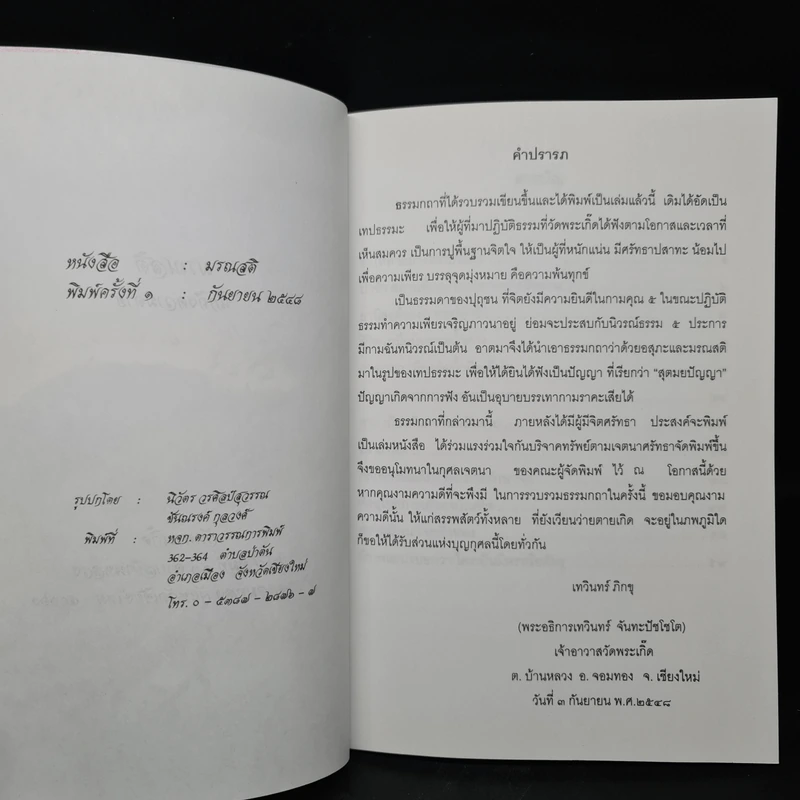 หนังสือ : มรณสติ
พิมพ์ครั้งที่ ๑ : กันยายน ๒๕๔๘
รูปปกโดย : นิวัตร วรศิลป์สุวรรณ
ชัยณรงค์ กุลวงค์
พิมพ์ที่ : หจก. ดาราวรรณการพิมพ์
362-364 ตำบลป่าตัน
อำเภอเมือง จังหวัดเชียงใหม่
โทร. ๐ - ๕๓๘๗ - ๒๘๗๖ - ๗
คำปรารภ
ธรรมกถาที่ได้รวบรวมเขียนขึ้นและได้พิมพ์เป็นเล่มแล้วนี้ เดิมได้อัดเป็น
เทปธรรมะ เพื่อให้ผู้ที่มาปฏิบัติธรรมที่วัดพระเกิ๊ดได้ฟังตามโอกาสและเวลาที่
เห็นสมควร เป็นการปูพื้นฐานจิตใจ ให้เป็นผู้ที่หนักแน่น มีศรัทธาปสาทะ น้อมไป
เพื่อความเพียร บรรลุจุดมุ่งหมาย คือความพ้นทุกข์
เป็นธรรมดาของปุถุชน ที่จิตยังมีความยินดีในกามคุณ ๕ ในขณะปฏิบัติ
ธรรมทำความเพียรเจริญภาวนาอยู่ ย่อมจะประสบกับนิวรณ์ธรรม ๕ ประการ
มีกามฉันทนิวรณ์เป็นต้น อาตมาจึงได้นำเอาธรรมกถาว่าด้วยอสุภะและมรณสติ
มาในรูปของเทปธรรมะ เพื่อให้ได้ยินได้ฟังเป็นปัญญา ที่เรียกว่า “สุตมยปัญญา”
ปัญญาเกิดจากการฟัง อันเป็นอุบายบรรเทากามราคะเสียได้
ธรรมกถาที่กล่าวมานี้ ภายหลังได้มีผู้มีจิตศรัทธา ประสงค์จะพิมพ์
เป็นเล่มหนังสือ ได้ร่วมแรงร่วมใจกันบริจาคทรัพย์ตามเจตนาศรัทธาจัดพิมพ์ขึ้น
จึงขออนุโมทนาในกุศลเจตนา ของคณะผู้จัดพิมพ์ ไว้ ณ โอกาสนี้ด้วย
หากคุณงามความดีที่จะพึงมี ในการรวบรวมธรรมกถาในครั้งนี้ ขอมอบคุณงาม
ความดีนั้น ให้แก่สรรพสัตว์ทั้งหลาย ที่ยังเวียนว่ายตายเกิด จะอยู่ในภพภูมิใด
ก็ขอให้ได้รับส่วนแห่งบุญกุศลนี้โดยทั่วกัน
เทวินทร์ ภิกขุ
(พระอธิการเทวินทร์ จันทะปัชโชโต)
เจ้าอาวาสวัดพระเกิ๊ด
ต. บ้านหลวง อ. จอมทอง จ. เชียงใหม่
วันที่ ๓ กันยายน พ.ศ.๒๕๔๘